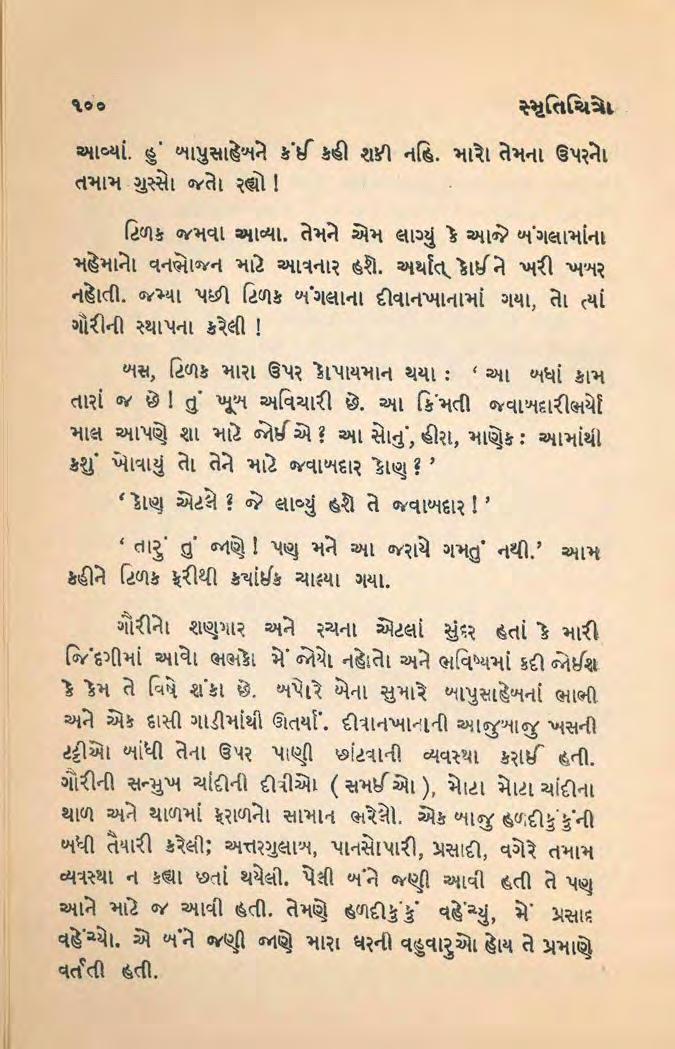 ૧૦૦ સ્મૃતિચિત્રો
આવ્યાં. હું બાપુસાહેબને કંઈ કહી શકી નહિ. મારો તેમના ઉપરનો
તમામ ગુસ્સો જતો રહ્યો !
ટિળક જમવા આવ્યા. તેમને એમ લાગ્યું કે આજે બંગલામાંના
મહેમાનો વનભોજન માટે આવનાર હશે. અર્થાત્ કોઈને ખરી ખબર
નહોતી. જમ્યા પછી ટિળક બંગલાના દીવાનખાનામાં ગયા, તો ત્યાં
ગૌરીની સ્થાપના કરેલી !
બસ, ટિળક મારા ઉપર કોપાયમાન થયા : ‘ આ બધાં કામ
તારાં જ છે ! તું ખૂબ અવિચારી છે. આ કિંમતી જવાબદારીભર્યો
માલ આપણે શા માટે જોઈએ ? આ સોનું, હીરા, માણેક : આમાંથી
કશું ખોવાયું તો તેને માટે જવાબદાર કોણ ? ’
‘ કોણ એટલે ? જે લાવ્યું હશે તે જવાબદાર ! ’
‘ તારું તું જાણે ! પણ મને આ જરાયે ગમતું નથી.’ આમ
કહીને ટિળક ફરીથી ક્યાંઈક ચાલ્યા ગયા.
ગૌરીનો શણગાર અને રચના એટલાં સુંદર હતાં કે મારી
જિંદગીમાં આવો ભભકો મેં જોયો નહોતો અને ભવિષ્યમાં કદી જોઈશ
કે કેમ તે વિષે શંકા છે. બપોરે બેના સુમારે બાપુસાહેબનાં ભાભી
અને એક દાસી ગાડીમાંથી ઊતર્યાં. દીવાનખાનાની આજુબાજુ ખસની
ટટ્ટીઓ બાંધી તેના ઉપર પાણી છાંટવાની વ્યવસ્થા કરાઈ હતી.
ગૌરીની સન્મુખ ચાંદીની દીવીઓ ( સમઈઓ ), મોટા મોટા ચાંદીના
થાળ અને થાળમાં ફરાળનો સામાન ભરેલો. એક બાજુ હળદીકુંકુંની
બધી તૈયારી કરેલી; અત્તરગુલાબ, પાનસોપારી, પ્રસાદી, વગેરે તમામ
વ્યવસ્થા ન કહ્યા છતાં થયેલી. પેલી બંને જણી આવી હતી તે પણ
આને માટે જ આવી હતી. તેમણે હળદીકુંકું વહેંચ્યું, મેં પ્રસાદ
વહેંચ્યો. એ બંને જણી જાણે મારા ઘરની વહુવારુઓ હોય તે પ્રમાણે
વર્તતી હતી.